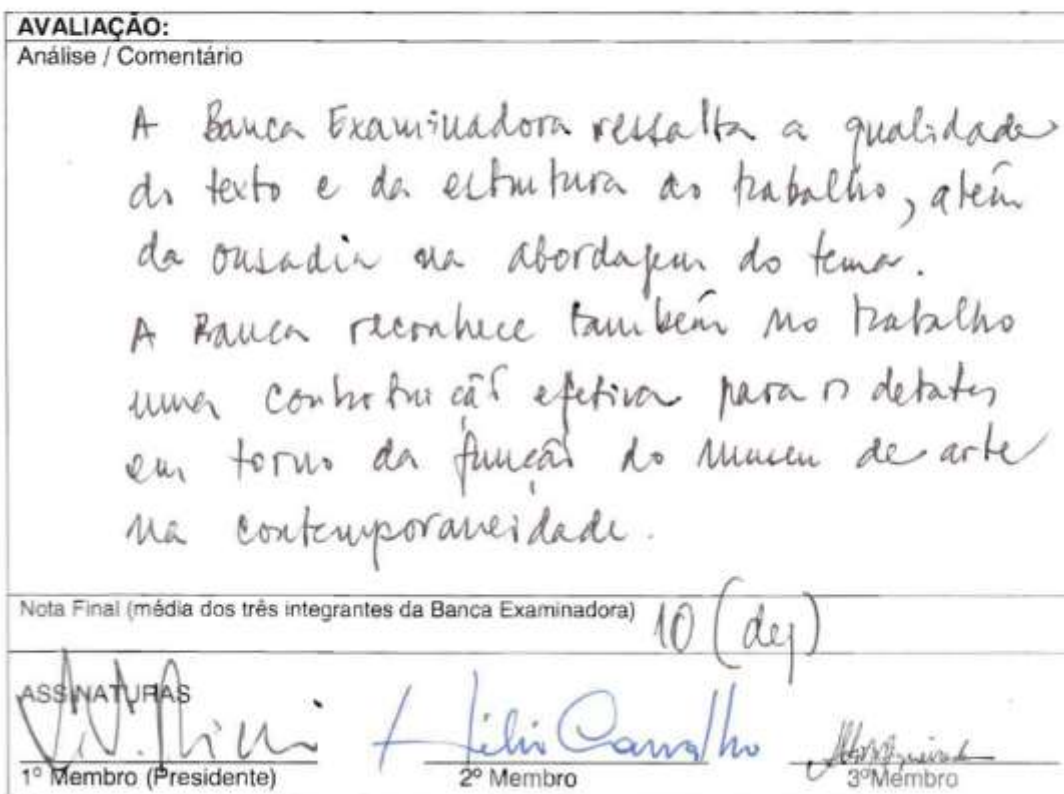 AVALIAÇÃO:
Análise / Comentário
A Banca Examinadora ressalta a qualidade
do texto e da estrutura do trabalho, além
da ousadia na abordagem do tema.
A Banca reconhece também no trabalho
uma contribuição efetiva para os debates
em torno da função do museu de arte
na contemporaneidade.
Nota Final (média dos três integrantes da Banca Examinadora) 10 (dez)
ASSINATURAS
Hélio Carvalho
1º Membro (Presidente) 2º Membro 3ºMembro